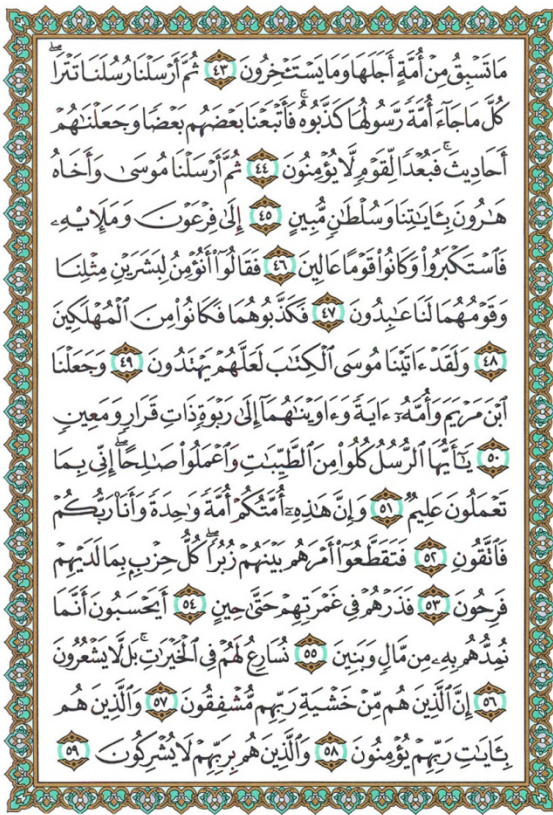 مَا تَسْبِقُ مِنْ أُمَّةٍ أَجَلَهَا وَمَا يَسْتَـْٔخِرُونَ ٤٣ ثُمَّ أَرْسَلْنَا رُسُلَنَا تَتْرَا ۖ
كُلَّ مَا جَآءَ أُمَّةً رَّسُولُهَا كَذَّبُوهُ ۚ فَأَتْبَعْنَا بَعْضَهُم بَعْضًا وَجَعَلْنَٰهُمْ
أَحَادِيثَ ۚ فَبُعْدًا لِّقَوْمٍ لَّا يُؤْمِنُونَ ٤٤ ثُمَّ أَرْسَلْنَا مُوسَىٰ وَأَخَاهُ
هَٰرُونَ بِـَٔايَٰتِنَا وَسُلْطَٰنٍ مُّبِينٍ ٤٥ إِلَىٰ فِرْعَوْنَ وَمَلَإِي۟هِۦ
فَٱسْتَكْبَرُوا۟ وَكَانُوا۟ قَوْمًا عَالِينَ ٤٦ فَقَالُوٓا۟ أَنُؤْمِنُ لِبَشَرَيْنِ مِثْلِنَا
وَقَوْمُهُمَا لَنَا عَٰبِدُونَ ٤٧ فَكَذَّبُوهُمَا فَكَانُوا۟ مِنَ ٱلْمُهْلَكِينَ
٤٨ وَلَقَدْ ءَاتَيْنَا مُوسَى ٱلْكِتَٰبَ لَعَلَّهُمْ يَهْتَدُونَ ٤٩ وَجَعَلْنَا
ٱبْنَ مَرْيَمَ وَأُمَّهُۥٓ ءَايَةً وَءَاوَيْنَٰهُمَآ إِلَىٰ رَبْوَةٍ ذَاتِ قَرَارٍ وَمَعِينٍ
٥٠ يَٰٓأَيُّهَا ٱلرُّسُلُ كُلُوا۟ مِنَ ٱلطَّيِّبَٰتِ وَٱعْمَلُوا۟ صَٰلِحًا ۖ إِنِّى بِمَا
تَعْمَلُونَ عَلِيمٌ ٥١ وَإِنَّ هَٰذِهِۦٓ أُمَّتُكُمْ أُمَّةً وَٰحِدَةً وَأَنَا۠ رَبُّكُمْ
فَٱتَّقُونِ ٥٢ فَتَقَطَّعُوٓا۟ أَمْرَهُم بَيْنَهُمْ زُبُرًا ۖ كُلُّ حِزْبٍۭ بِمَا لَدَيْهِمْ
فَرِحُونَ ٥٣ فَذَرْهُمْ فِى غَمْرَتِهِمْ حَتَّىٰ حِينٍ ٥٤ أَيَحْسَبُونَ أَنَّمَا
نُمِدُّهُم بِهِۦ مِن مَّالٍ وَبَنِينَ ٥٥ نُسَارِعُ لَهُمْ فِى ٱلْخَيْرَٰتِ ۚ بَل لَّا يَشْعُرُونَ
٥٦ إِنَّ ٱلَّذِينَ هُم مِّنْ خَشْيَةِ رَبِّهِم مُّشْفِقُونَ ٥٧ وَٱلَّذِينَ هُم
بِـَٔايَٰتِ رَبِّهِمْ يُؤْمِنُونَ ٥٨ وَٱلَّذِينَ هُم بِرَبِّهِمْ لَا يُشْرِكُونَ ٥٩